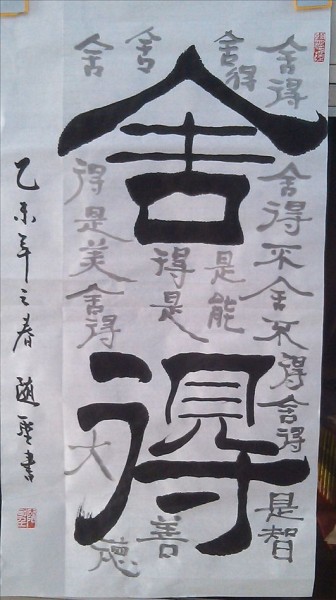 舍得
舍得
舍得不舍不得舍得
是智
舍得
是能
舍
得是
善
舍
得是美
舍得
大
德
乙未年之春 随 書